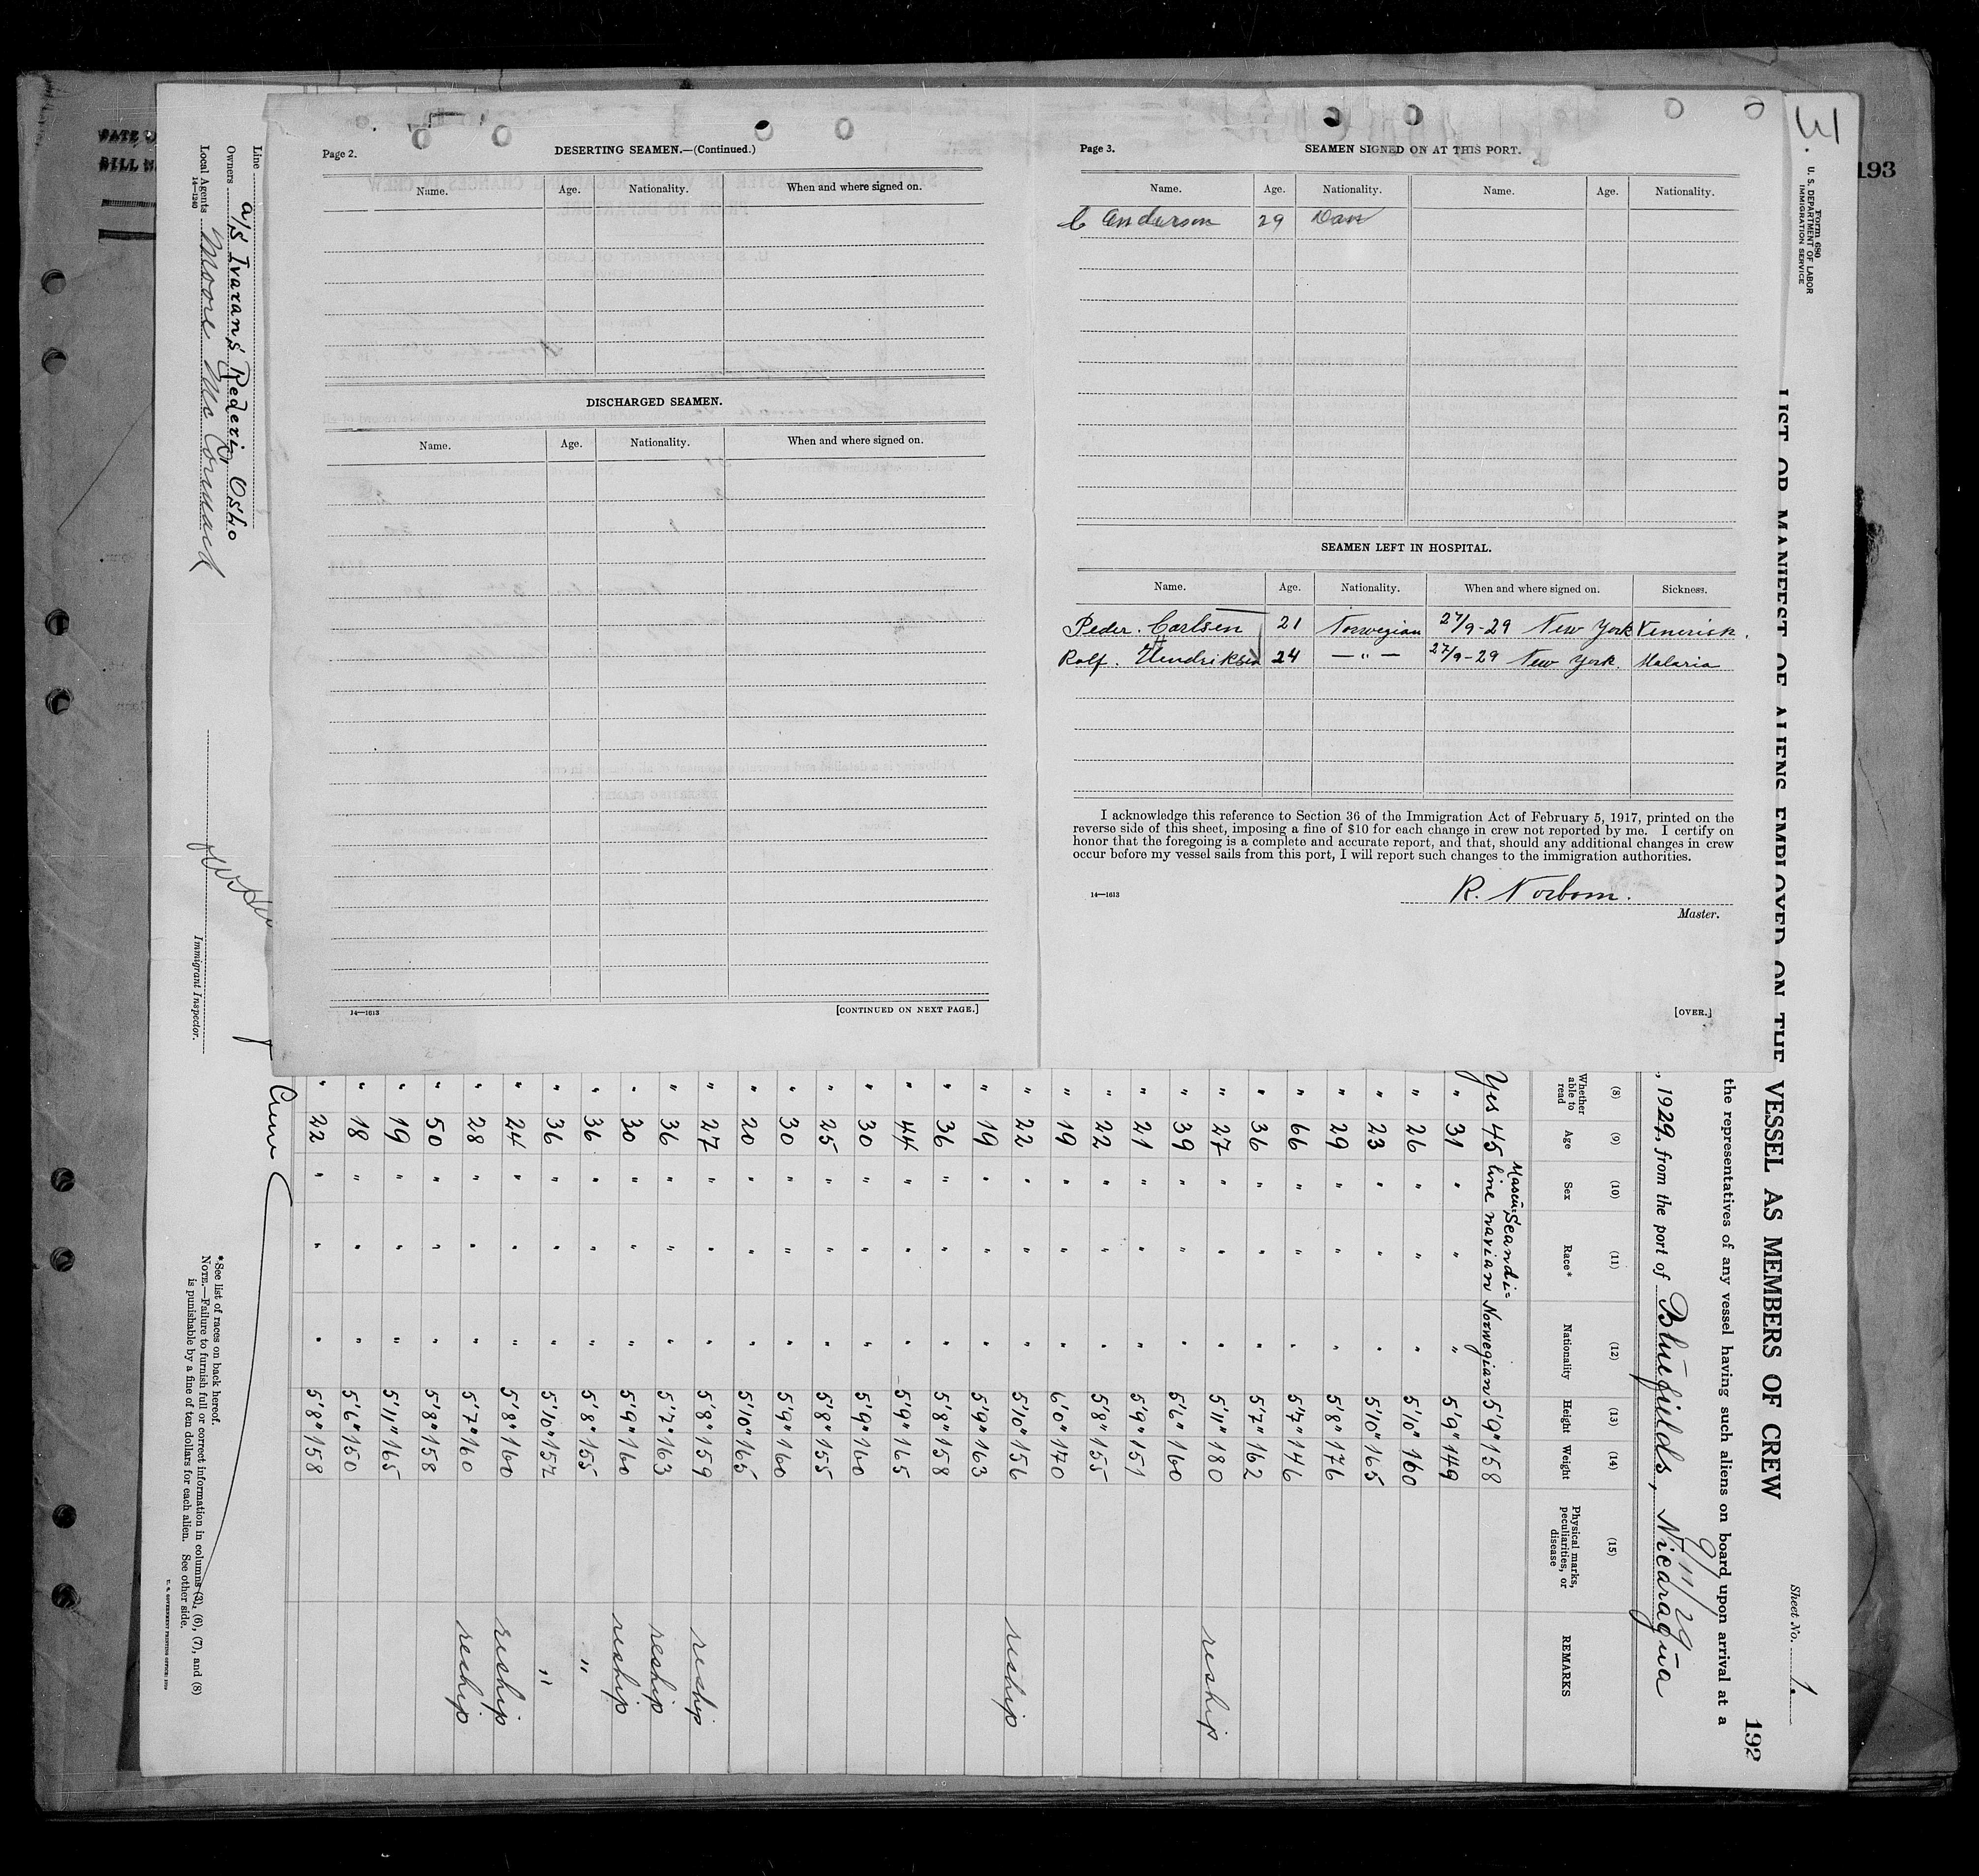 Page 2.
DESERTING SEAMEN.—(Continued.)
Name. Age. Nationality. When and where signed on.
DISCHARGED SEAMEN.
Name. Age. Nationality. When and where signed on.
14—1613
[CONTINUED ON NEXT PAGE.]
Page 3.
SEAMEN SIGNED ON AT THIS PORT.
Name. Age. Nationality. Name. Age. Nationality.
C Anderson 29 Dan
SEAMEN LEFT IN HOSPITAL.
Name. Age. Nationality. When and where signed on. Sickness.
Peder. Carlsen 21 Norwegian 27/9-29 New York Venerisk.
Rolf. Hendriksen 24 —"— 27/9-29 New York. Malaria
I acknowledge this reference to Section 36 of the Immigration Act of February 5, 1917, printed on the
reverse side of this sheet, imposing a fine of $10 for each change in crew not reported by me. I certify on
honor that the foregoing is a complete and accurate report, and that, should any additional changes in crew
occur before my vessel sails from this port, I will report such changes to the immigration authorities.
R. Norbom.
14—1613
Master.
[OVER.]
193
Form 680
U. S. DEPARTMENT OF LABOR
IMMIGRATION SERVICE
Sheet No. 1.
192
LIST OR MANIFEST OF ALIENS EMPLOYED ON THE VESSEL AS MEMBERS OF CREW
the representatives of any vessel having such aliens on board upon arrival at a
9/11/29
, 1929, from the port of Bluefields, Nicaragua
(8) (9) (10) (11) (12) (13) (14) (15)
Whether able to read Age Sex Race* Nationality Height Weight Physical marks, peculiarities, or disease REMARKS
Yes 45 Mascu=line Scandi=navian Norwegian 5'9" 158
" 31 " " " 5'9" 149
" 26 " " " 5'10" 160
" 23 " " " 5'10" 165
" 29 " " " 5'8" 176
" 66 " " " 5'7" 146
" 36 " " " 5'7" 162
" 27 " " " 5'11" 180 reship
" 39 " " " 5'6" 160
" 21 " " " 5'9" 151
" 22 " " " 5'8" 155
" 19 " " " 6'0" 170
" 22 " " " 5'10" 156 reship
" 19 " " " 5'9" 163
" 36 " " " 5'8" 158
" 44 " " " 5'9" 165
" 30 " " " 5'9" 160
" 25 " " " 5'8" 155
" 30 " " " 5'9" 160
" 20 " " " 5'10" 165
" 27 " " " 5'8" 159 reship
" 36 " " " 5'7" 163 reship
" 30 " " " 5'9" 160 reship
" 36 " " " 5'8" 155 "
" 36 " " " 5'10" 152 "
" 24 " " " 5'8" 160 reship
" 28 " " " 5'7" 160 reship
" 50 " " " 5'8" 158
" 19 " " " 5'11" 165
" 18 " " " 5'6" 150
" 22 " " " 5'8" 158
Line
Owners a/S Ivarans Rederi, Oslo
Local Agents Moore Mc Cormack
14—1240
Immigrant Inspector.
*See list of races on back hereof.
NOTE.—Failure to furnish full or correct information in columns (3), (6), (7), and (8)
is punishable by a fine of ten dollars for each alien. See other side.